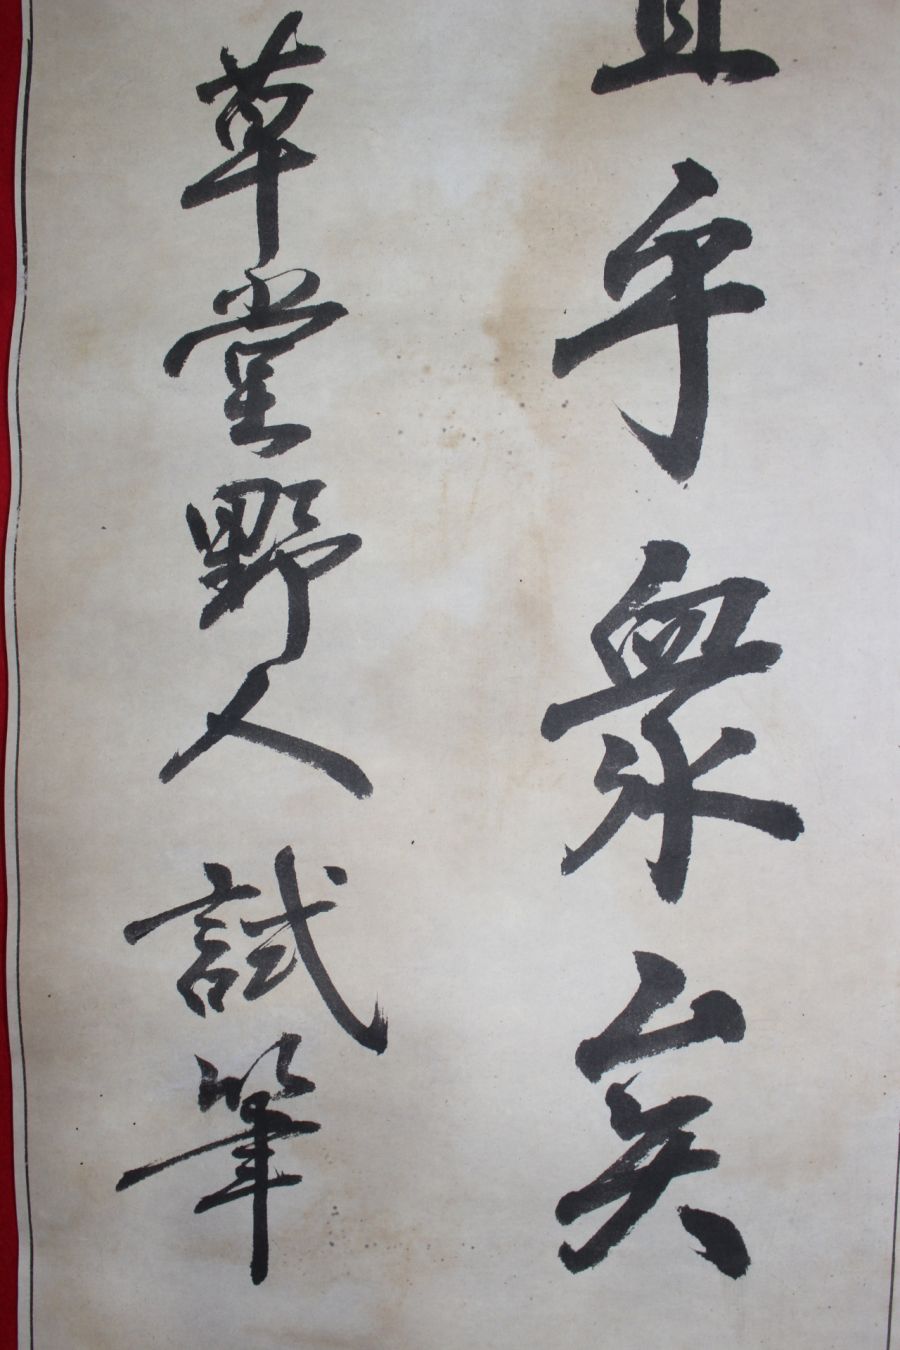 宜乎衆矣
草堂野人試筆